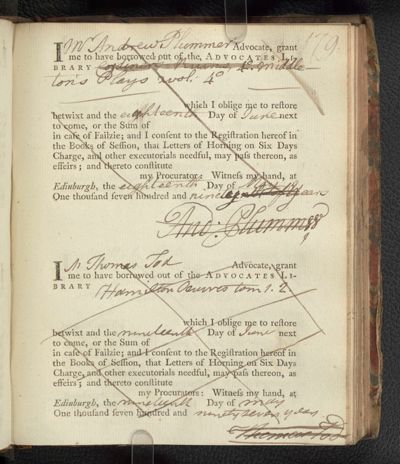 179.
I Mr Andrew Plummer Advocate, grant
me to have borrowed out of the ADVOCATES LI-
BRARY Middle-
ton's Plays vol. 4°
which I oblige me to restore
betwixt and the eighteenth Day of June next
to come, or the Sum of
in case of Failzie; and I consent to the Registration hereof in
the Books of Session, that Letters of Horning on Six Days
Charge, and other executorials needful, may pass thereon, as
effeirs; and thereto constitute
my Procurators: Witness my hand, at
Edinburgh, the eighteenth Day of May
One thousand seven hundred and ninety
And: Plummer
I Mr Thomas Tod Advocate, grant
me to have borrowed out of the ADVOCATES LI-
BRARY
Hamilton Oeuvres tom 1. 2
which I oblige me to restore
betwixt and the nineteenth Day of June next
to come, or the Sum of
in case of Failzie; and I consent to the Registration hereof in
the Books of Session, that Letters of Horning on Six Days
Charge, and other executorials needful, may pass thereon, as
effeirs; and thereto constitute
my Procurators: Witness my hand, at
Edinburgh, the nineteenth Day of May
One thousand seven hundred and ninety seven years
Thomas Tod